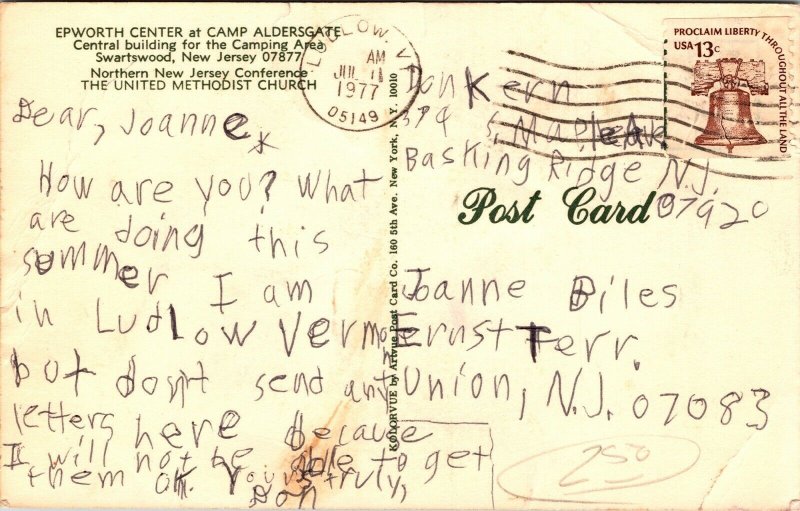 EPWORTH CENTER at CAMP ALDERSGATE
Central building for the Camping Area
Swartswood, New Jersey 07877
Northern New Jersey Conference
THE UNITED METHODIST CHURCH
LUDLOW, VT
AM
JUL 11
1977
05149
PROCLAIM LIBERTY THROUGHOUT ALL THE LAND
USA 13c
Don Kern
S. Maple Ave
Basking Ridge N.J.
07920
Post Card
Dear, Joanne
How are you? What
are doing this
summer I am
in Ludlow Vermont
but don't send any
letters here because
I will not be able to get
them ok. Yours truly,
Don
KOLORVUE by Artvue Post Card Co. 160 5th Ave. New York, N.Y. 10010
Joanne Biles
Ernst Terr.
Union, N.J. 07083
250